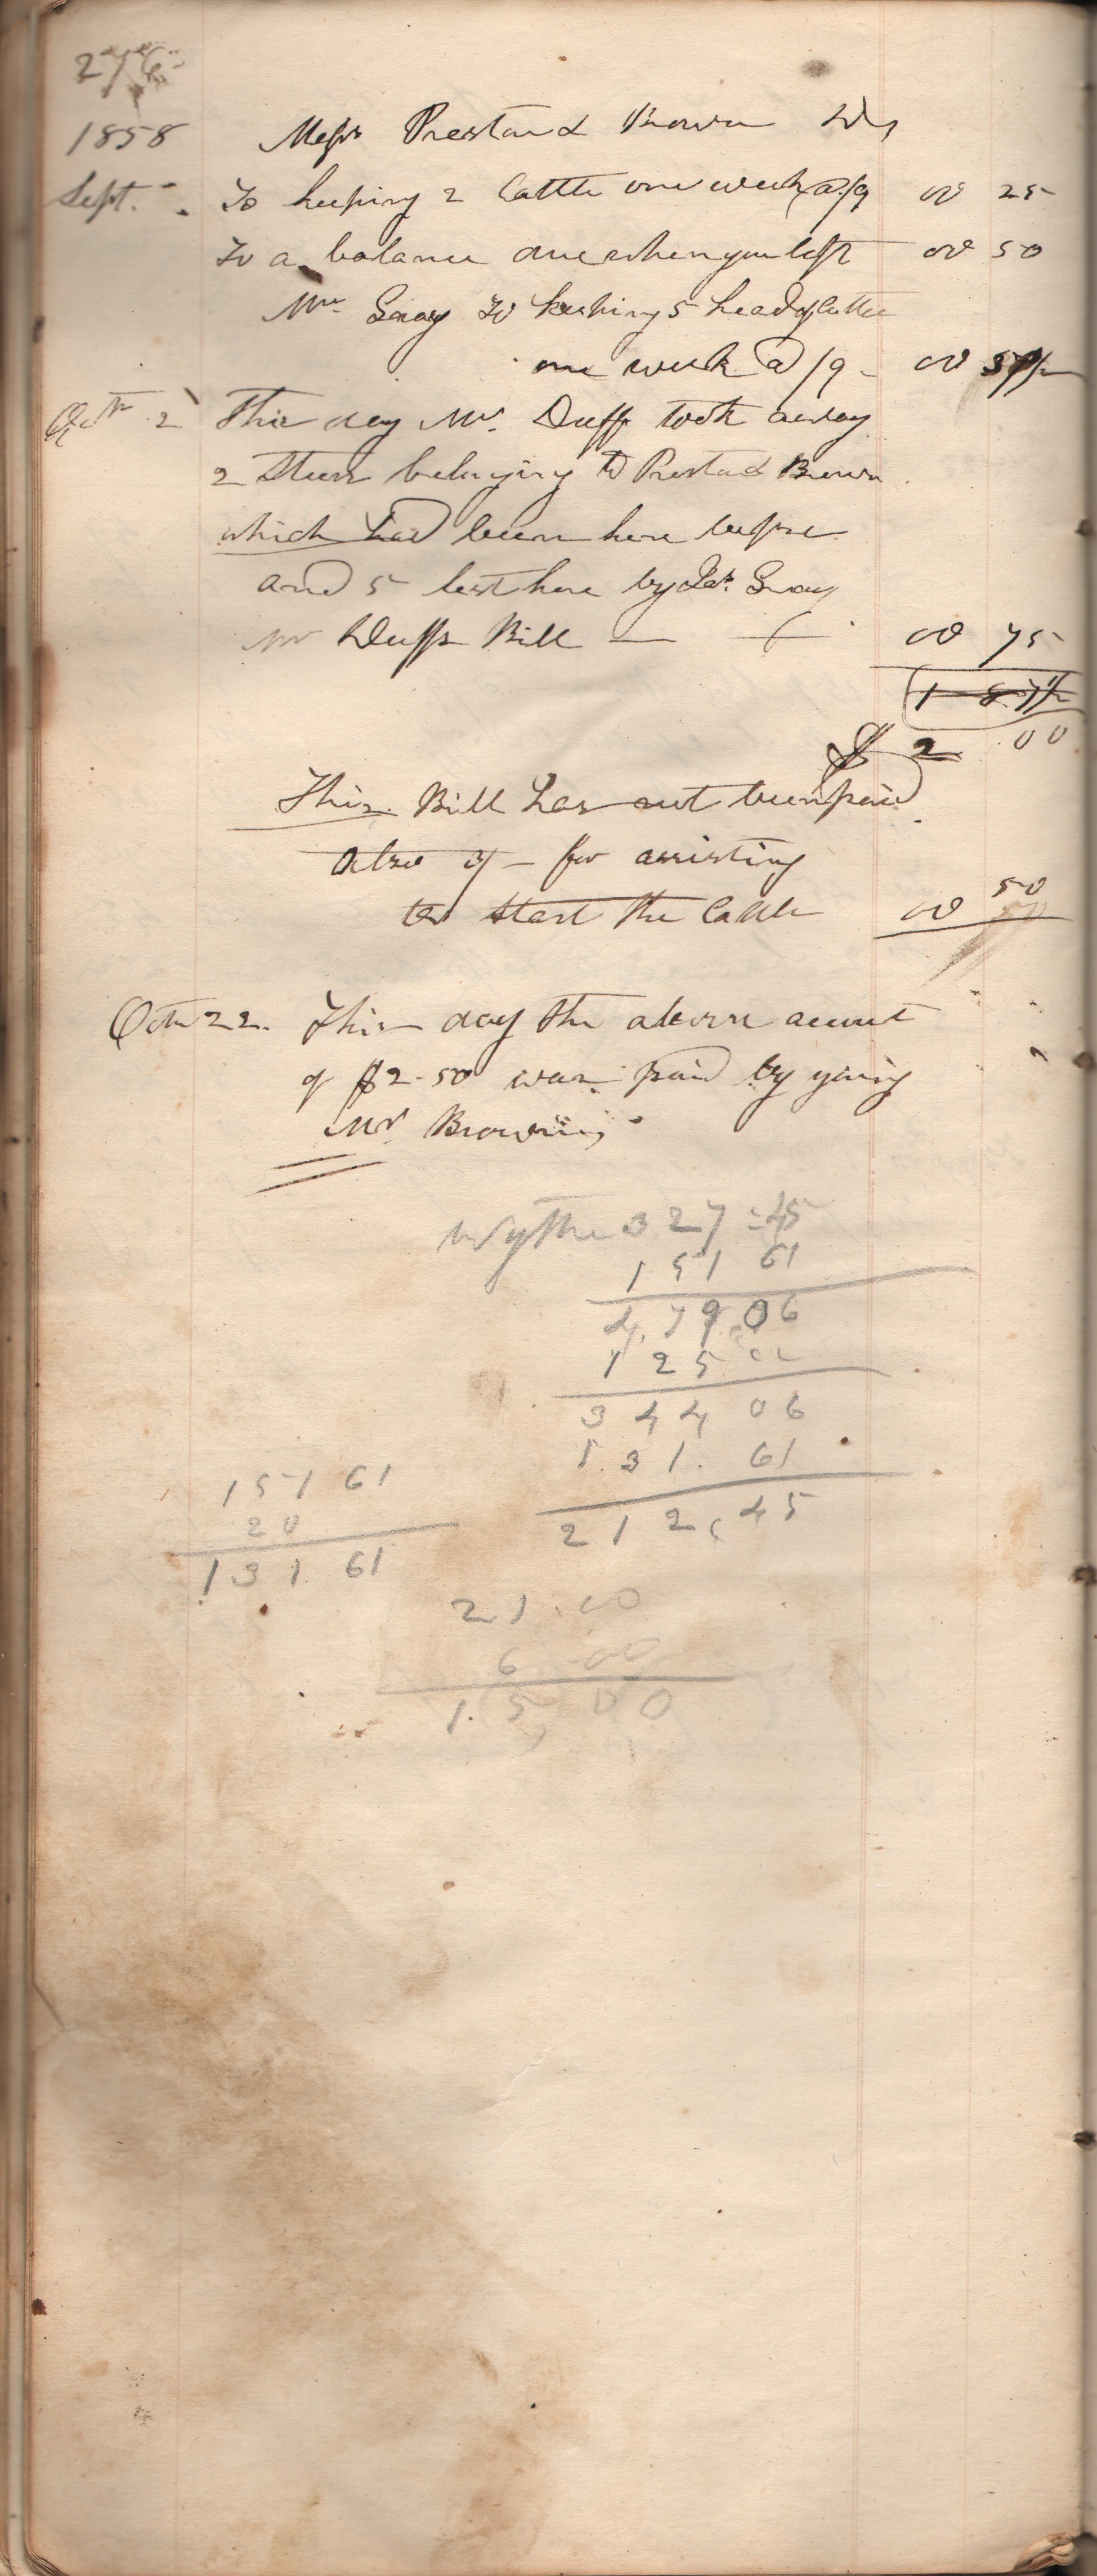 276
1858 Messrs Preston & Brown Drs
Sept. To keeping 2 Cattle one week @ /9 00 25
To a balance due when you left 00 50
Mr. Gray To keeping 5 head of Cattle
one week @ /9 - 00
Octr 2 This day Mr. Duff took away
2 Steers belonging to Preston & Brown
which had been here before
and 5 left here by Jas. Gray
Mr Duffs Bill — 00 75
1 87 1/2
$ 2 00
This Bill has not been paid
Also 3/ - for assisting
to start the Cattle 00 50
Octr 22. This day the above account
of $2-50 was paid by giving
Mr. Browning
Wythe 327 45
151 61
479.06
125 00
344 06
131. 61
212, 45
151 61
20
131. 61
21.00
6 00
15 00